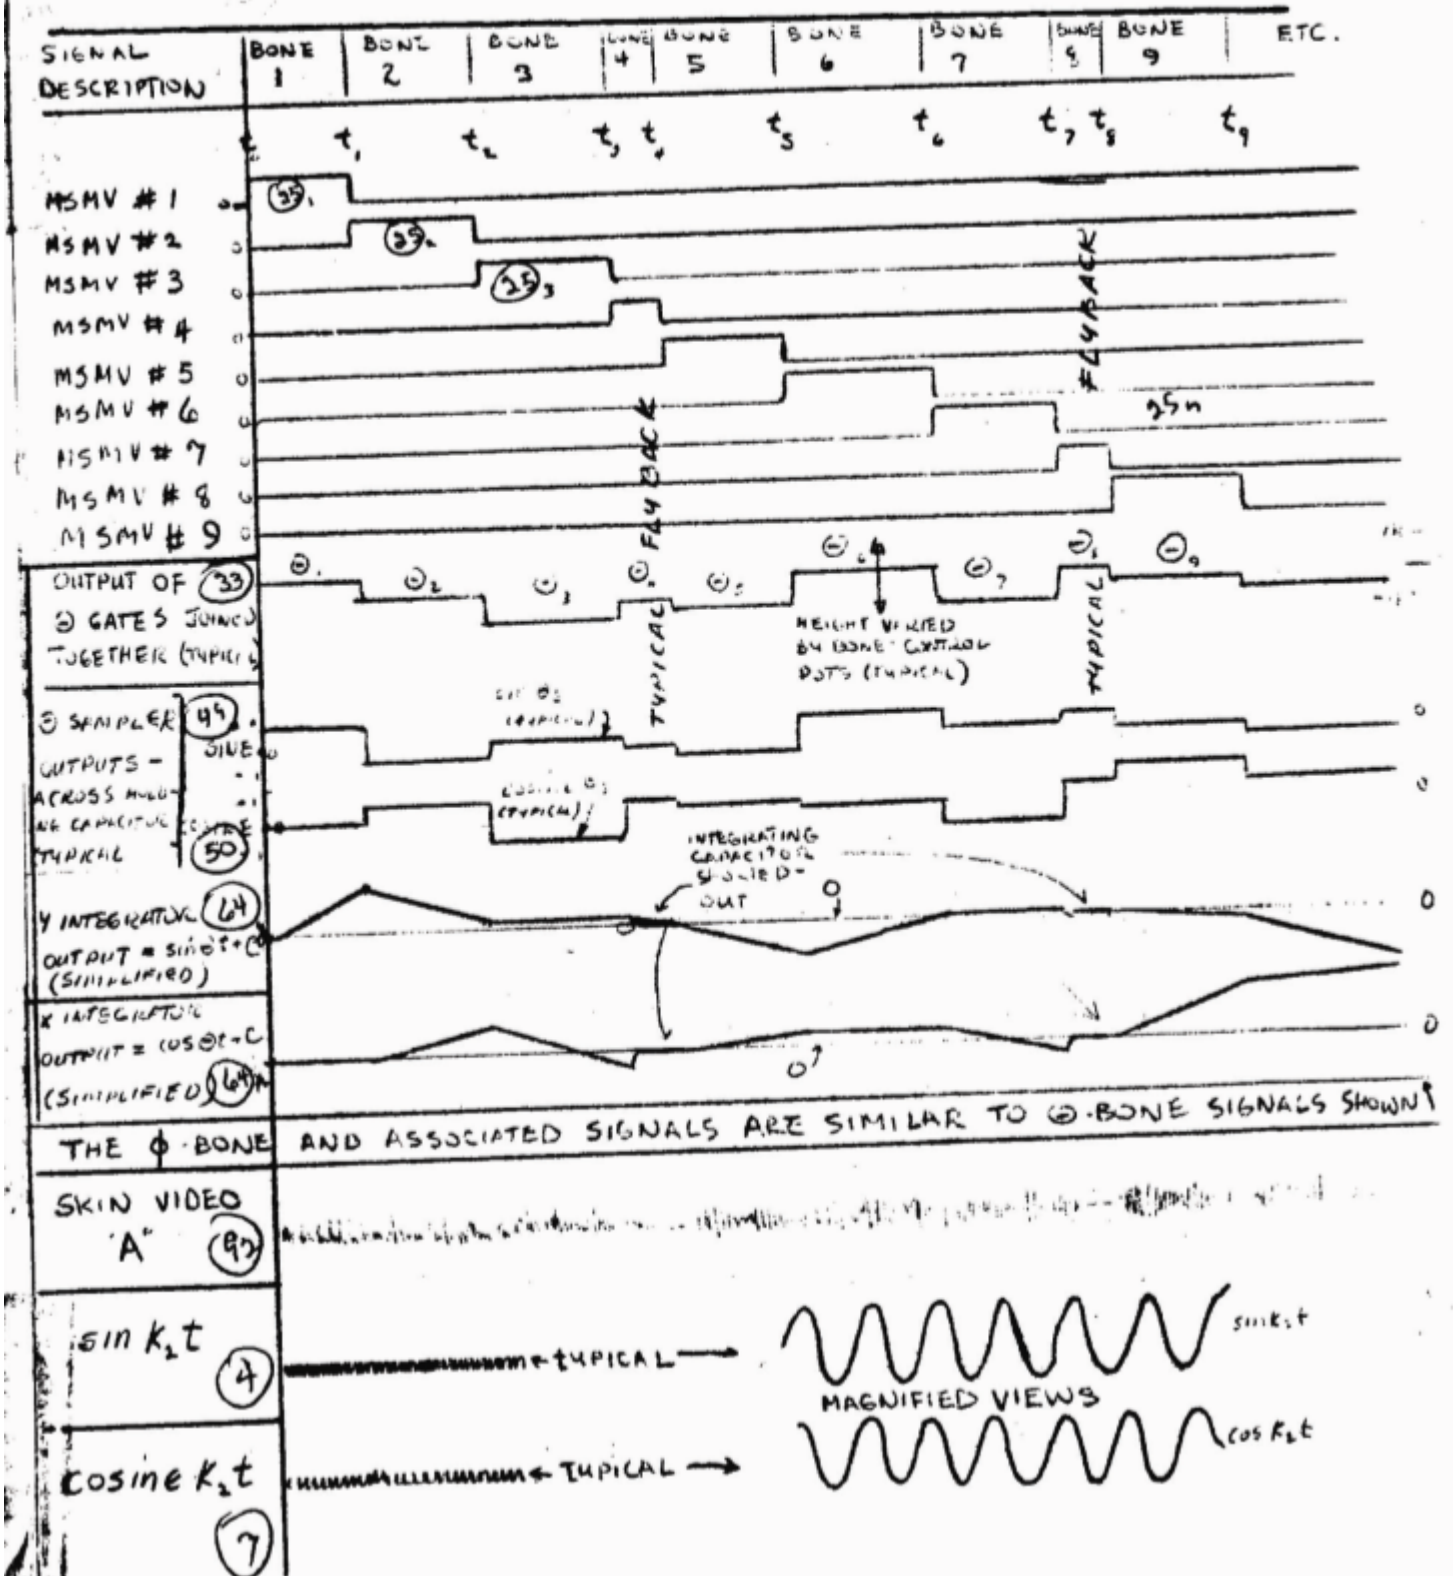 SIGNAL DESCRIPTION
BONE 1
BONE 2
BONE 3
BONE 4
BONE 5
BONE 6
BONE 7
BONE 8
BONE 9
ETC.
t₁ t₂ t₃ t₄ t₅ t₆ t₇ t₈ t₉
MSMV #1 0 25₁
MSMV #2 0 25₂
MSMV #3 0 25₃
MSMV #4 0
MSMV #5 0
MSMV #6 25n
MSMV #7
MSMV #8
MSMV #9 0
FLYBACK
FLYBACK
OUTPUT OF 33
Θ GATES JOINED
TOGETHER (TYPICAL)
Θ₁ Θ₂ Θ₃ Θ₄ Θ₅ Θ₆ Θ₇ Θ₈ Θ₉
TYPICAL
TYPICAL
HEIGHT VARIED
BY BONE CONTROL
POTS (TYPICAL)
Θ SAMPLER 49
SINE
OUTPUTS -
ACROSS HOLD-
ING CAPACITOR COSINE
TYPICAL 50
SIN Θ₃
(TYPICAL)
COSINE Θ₃
(TYPICAL)
0
0
INTEGRATING
CAPACITOR
SHORTED-
OUT
Y INTEGRATOR 64
OUTPUT = sin Θt + C
(SIMPLIFIED)
0
0
X INTEGRATOR
OUTPUT = COS Θt + C
(SIMPLIFIED) 64A
0
0
THE ϕ-BONE AND ASSOCIATED SIGNALS ARE SIMILAR TO Θ-BONE SIGNALS SHOWN
SKIN VIDEO
"A" 92
sin K₂t
4
TYPICAL
sin K₂t
MAGNIFIED VIEWS
cosine K₂t
7
TYPICAL
cos K₂t